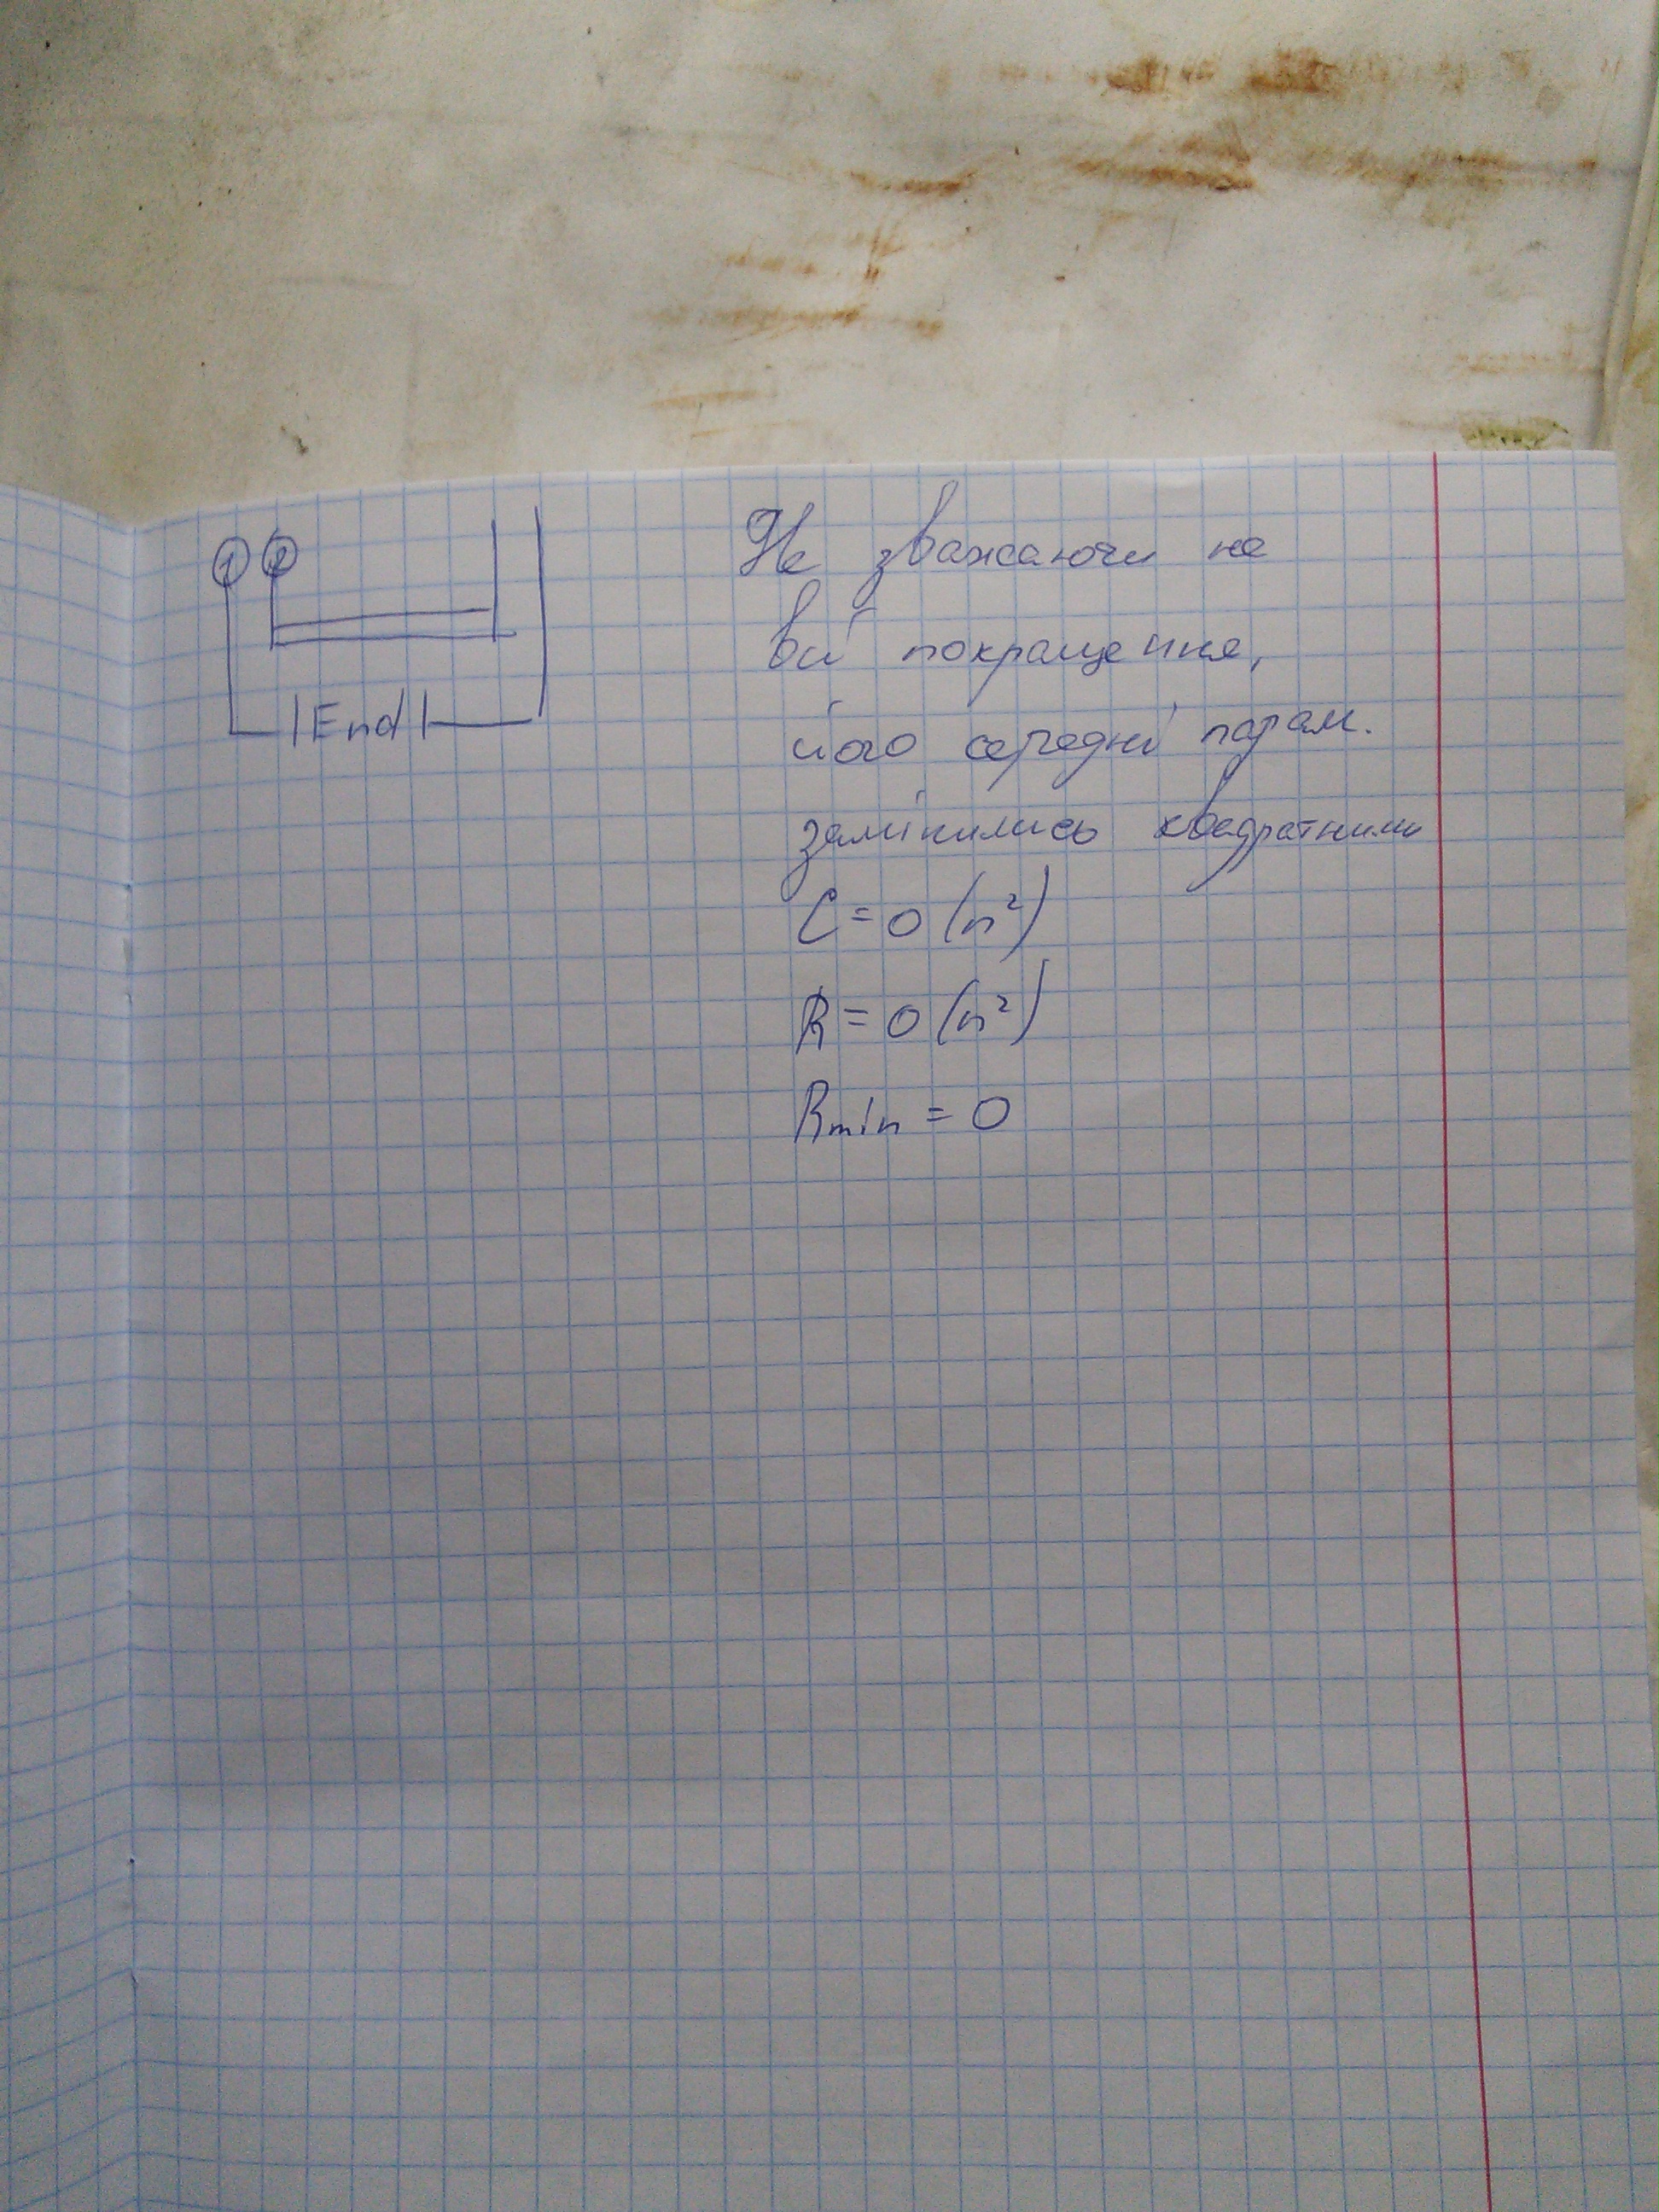 1 2
End
Не зважаючи на
всі покращення,
його середні парам.
замінились квадратними
C = O(n²)
R = O(n²)
Rmin = 0